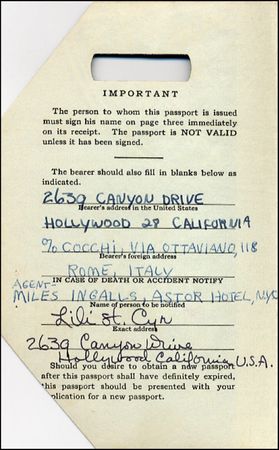 IMPORTANT
The person to whom this passport is issued
must sign his name on page three immediately
on its receipt. The passport is NOT VALID
unless it has been signed.
The bearer should also fill in blanks below as
indicated.
2639 CANYON DRIVE
Bearer's address in the United States
HOLLYWOOD 28 CALIFORNIA
% COCCHI, VIA OTTAVIANO, 118
Bearer's foreign address
ROME, ITALY
IN CASE OF DEATH OR ACCIDENT NOTIFY
AGENT-
MILES INGALLS, ASTOR HOTEL, N.Y.C.
Name of person to be notified
Lili St. Cyr
Exact address
2639 Canyon Drive
Hollywood California, U.S.A.
Should you desire to obtain a new passport
after this passport shall have definitely expired,
this passport should be presented with your
application for a new passport.